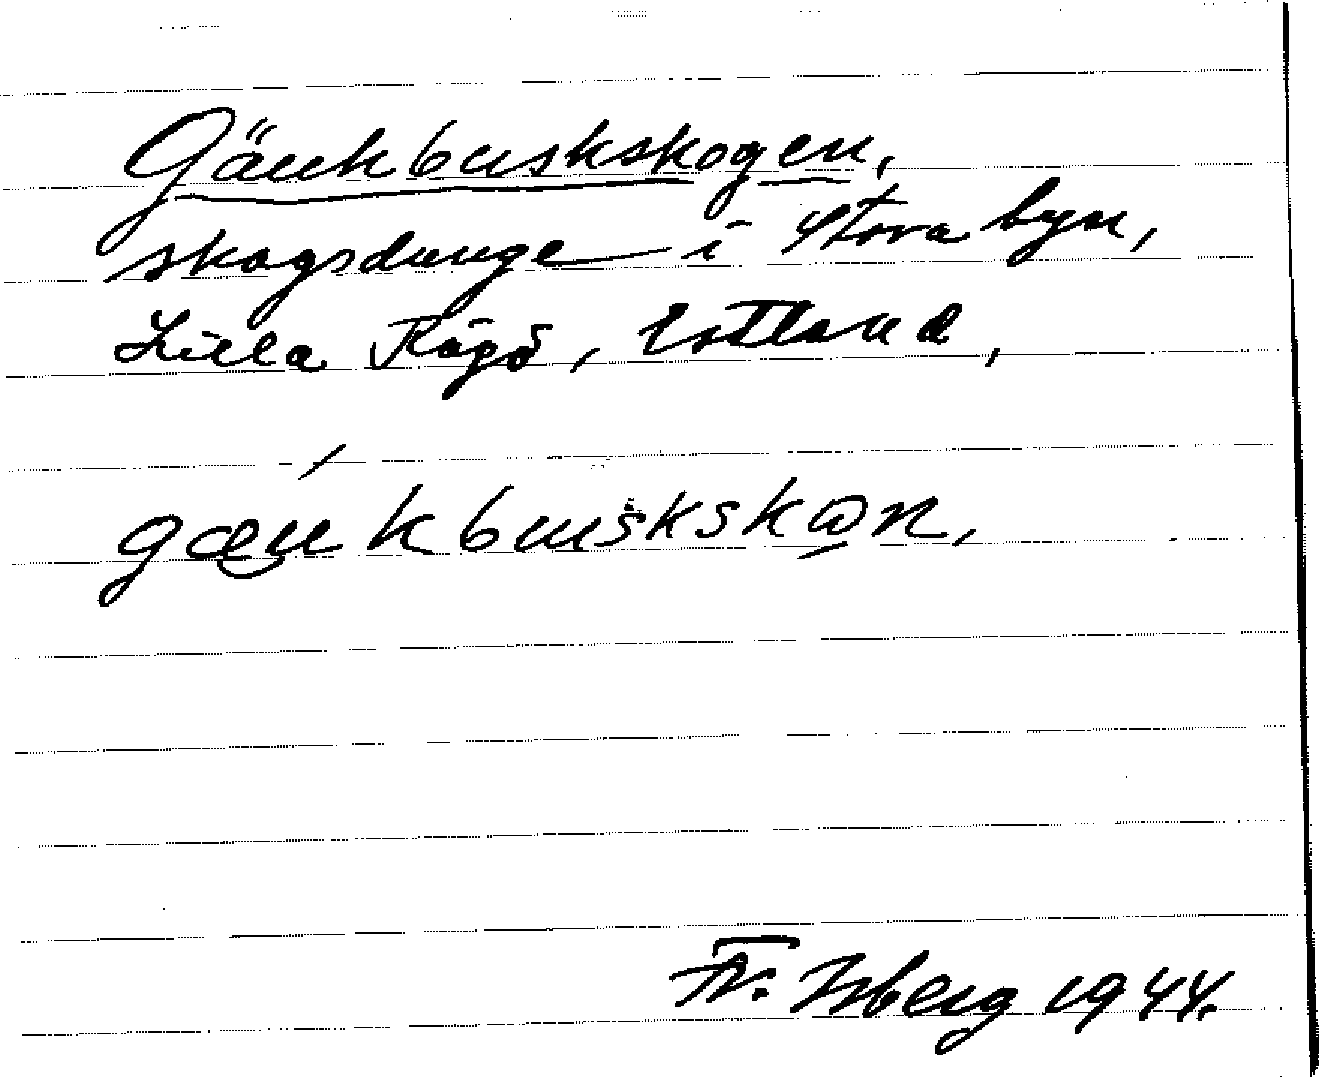 Gäukbuskskogen,
skogsdunge i Stora byn,
Lilla Rågö, Estland,
gæu̯kbuskskɷn,
Fr. Isberg 1944.